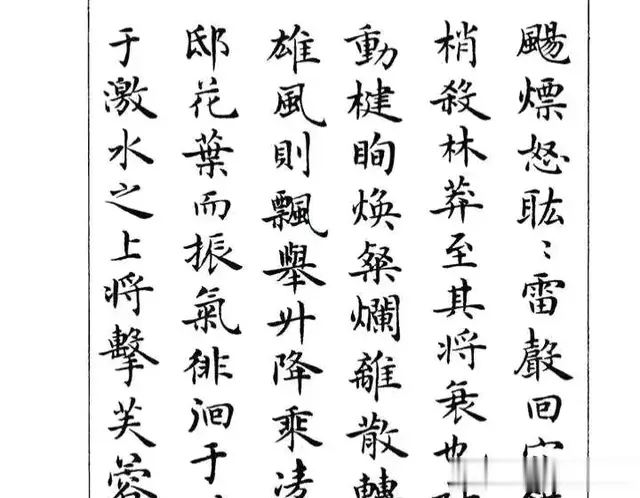 颺熛怒耾〻雷聲回
梢殺林莽至其將衰也
動楗眴煥粲爛離散轉
雄風則飄舉升降乘凌
邸花葉而振氣徘洄于
于激水之上將擊芙蓉